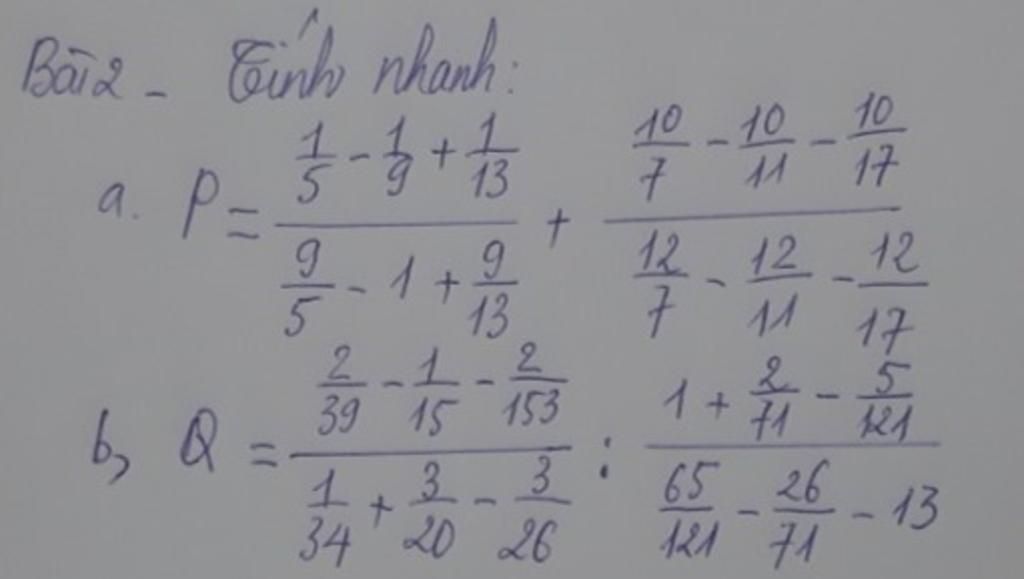 Bài 2 - Tính nhanh:
a. P = \frac{\frac{1}{5} - \frac{1}{9} + \frac{1}{13}}{\frac{9}{5} - 1 + \frac{9}{13}} + \frac{\frac{10}{7} - \frac{10}{11} - \frac{10}{17}}{\frac{12}{7} - \frac{12}{11} - \frac{12}{17}}
b, Q = \frac{\frac{2}{39} - \frac{1}{15} - \frac{2}{153}}{\frac{1}{34} + \frac{3}{20} - \frac{3}{26}} : \frac{1 + \frac{2}{71} - \frac{5}{121}}{\frac{65}{121} - \frac{26}{71} - 13}